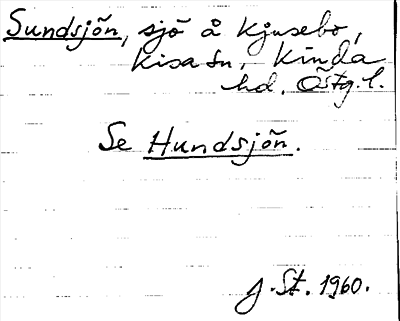 Sundsjön, sjö å Kjusebo,
Kisa sn, Kinda
hd. Östg. l.
Se Hundsjön.
J. St. 1960.